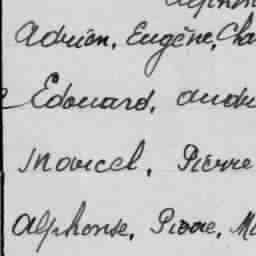 Adrien, Eugène, Cha
Edouard, André
Marcel, Pierre
Alphonse, Pierre, M